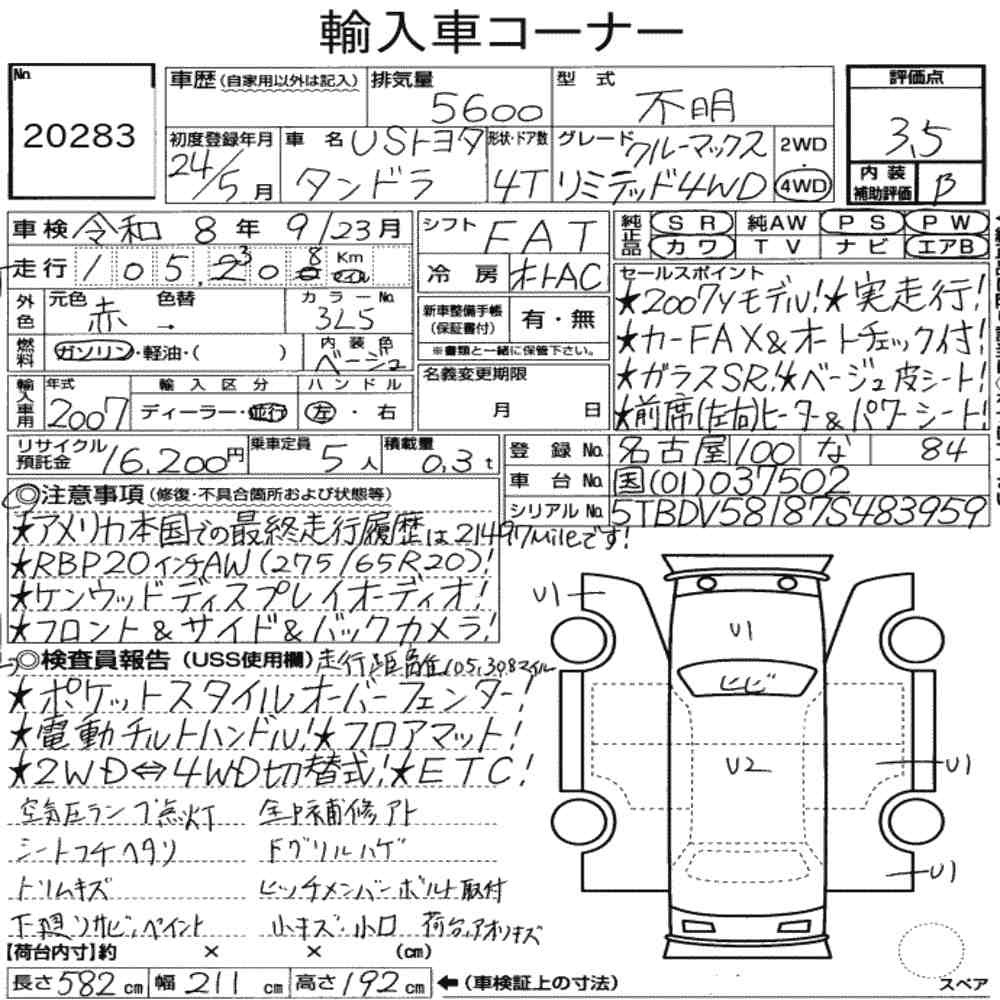 輸入車コーナー
No.
20283
車歴 (自家用以外は記入)
排気量
5600
型式
不明
評価点
3.5
内装補助評価
B
初度登録年月
24/5月
車名
USトヨタ
タンドラ
形状・ドア数
4T
グレード
クルーマックス
リミテッド4WD
2WD
4WD
車検 令和 8年 9/23月
走行 105,308
Km
マイル
外色
元色
赤
色替
カラーNo.
3L5
燃料
ガソリン・軽油・( )
内装色
ベージュ
輸入車用
年式
2007
輸入区分
ディーラー・並行
ハンドル
左・右
シフト
FAT
冷房
オートAC
新車整備手帳
(保証書付)
有・無
※書類と一緒に保管下さい。
名義変更期限
月 日
純正品
SR 純AW PS PW
カワ TV ナビ エアB
セールスポイント
★2007yモデル!★実走行!
★カーFAX&オートチェック付!
★ガラスSR!★ベージュ皮シート!
★前席(左右)ヒーター&パワーシート!
リサイクル預託金
16,200円
乗車定員
5人
積載量
0.3t
登録No.
名古屋 100 な 84
車台No.
国(01)037502
シリアルNo.
5TBDV58187S483959
◎注意事項(修復・不具合箇所および状態等)
★アメリカ本国での最終走行履歴は21497mileです!
★RBP20インチAW(275/65R20)!
★ケンウッドディスプレイオーディオ!
★フロント&サイド&バックカメラ!
◎検査員報告(USS使用欄)走行距離105,308マイル
★ポケットスタイルオーバーフェンダー!
★電動チルトハンドル!★フロアマット!
★2WD⇔4WD切替式!★ETC!
空気圧ランプ点灯 全P補修アト
シートコゲヘタリ FグリルハゲF
トリムキズ ヒッチメンバーボルト取付
下廻りサビ、ペイント 小キズ・小凹 荷台、アオリキズ
【荷台内寸】約 × × (cm)
長さ582cm 幅211cm 高さ192cm ←(車検証上の寸法)
U1
U1
ヒビ
U2
U1
U1
スペア